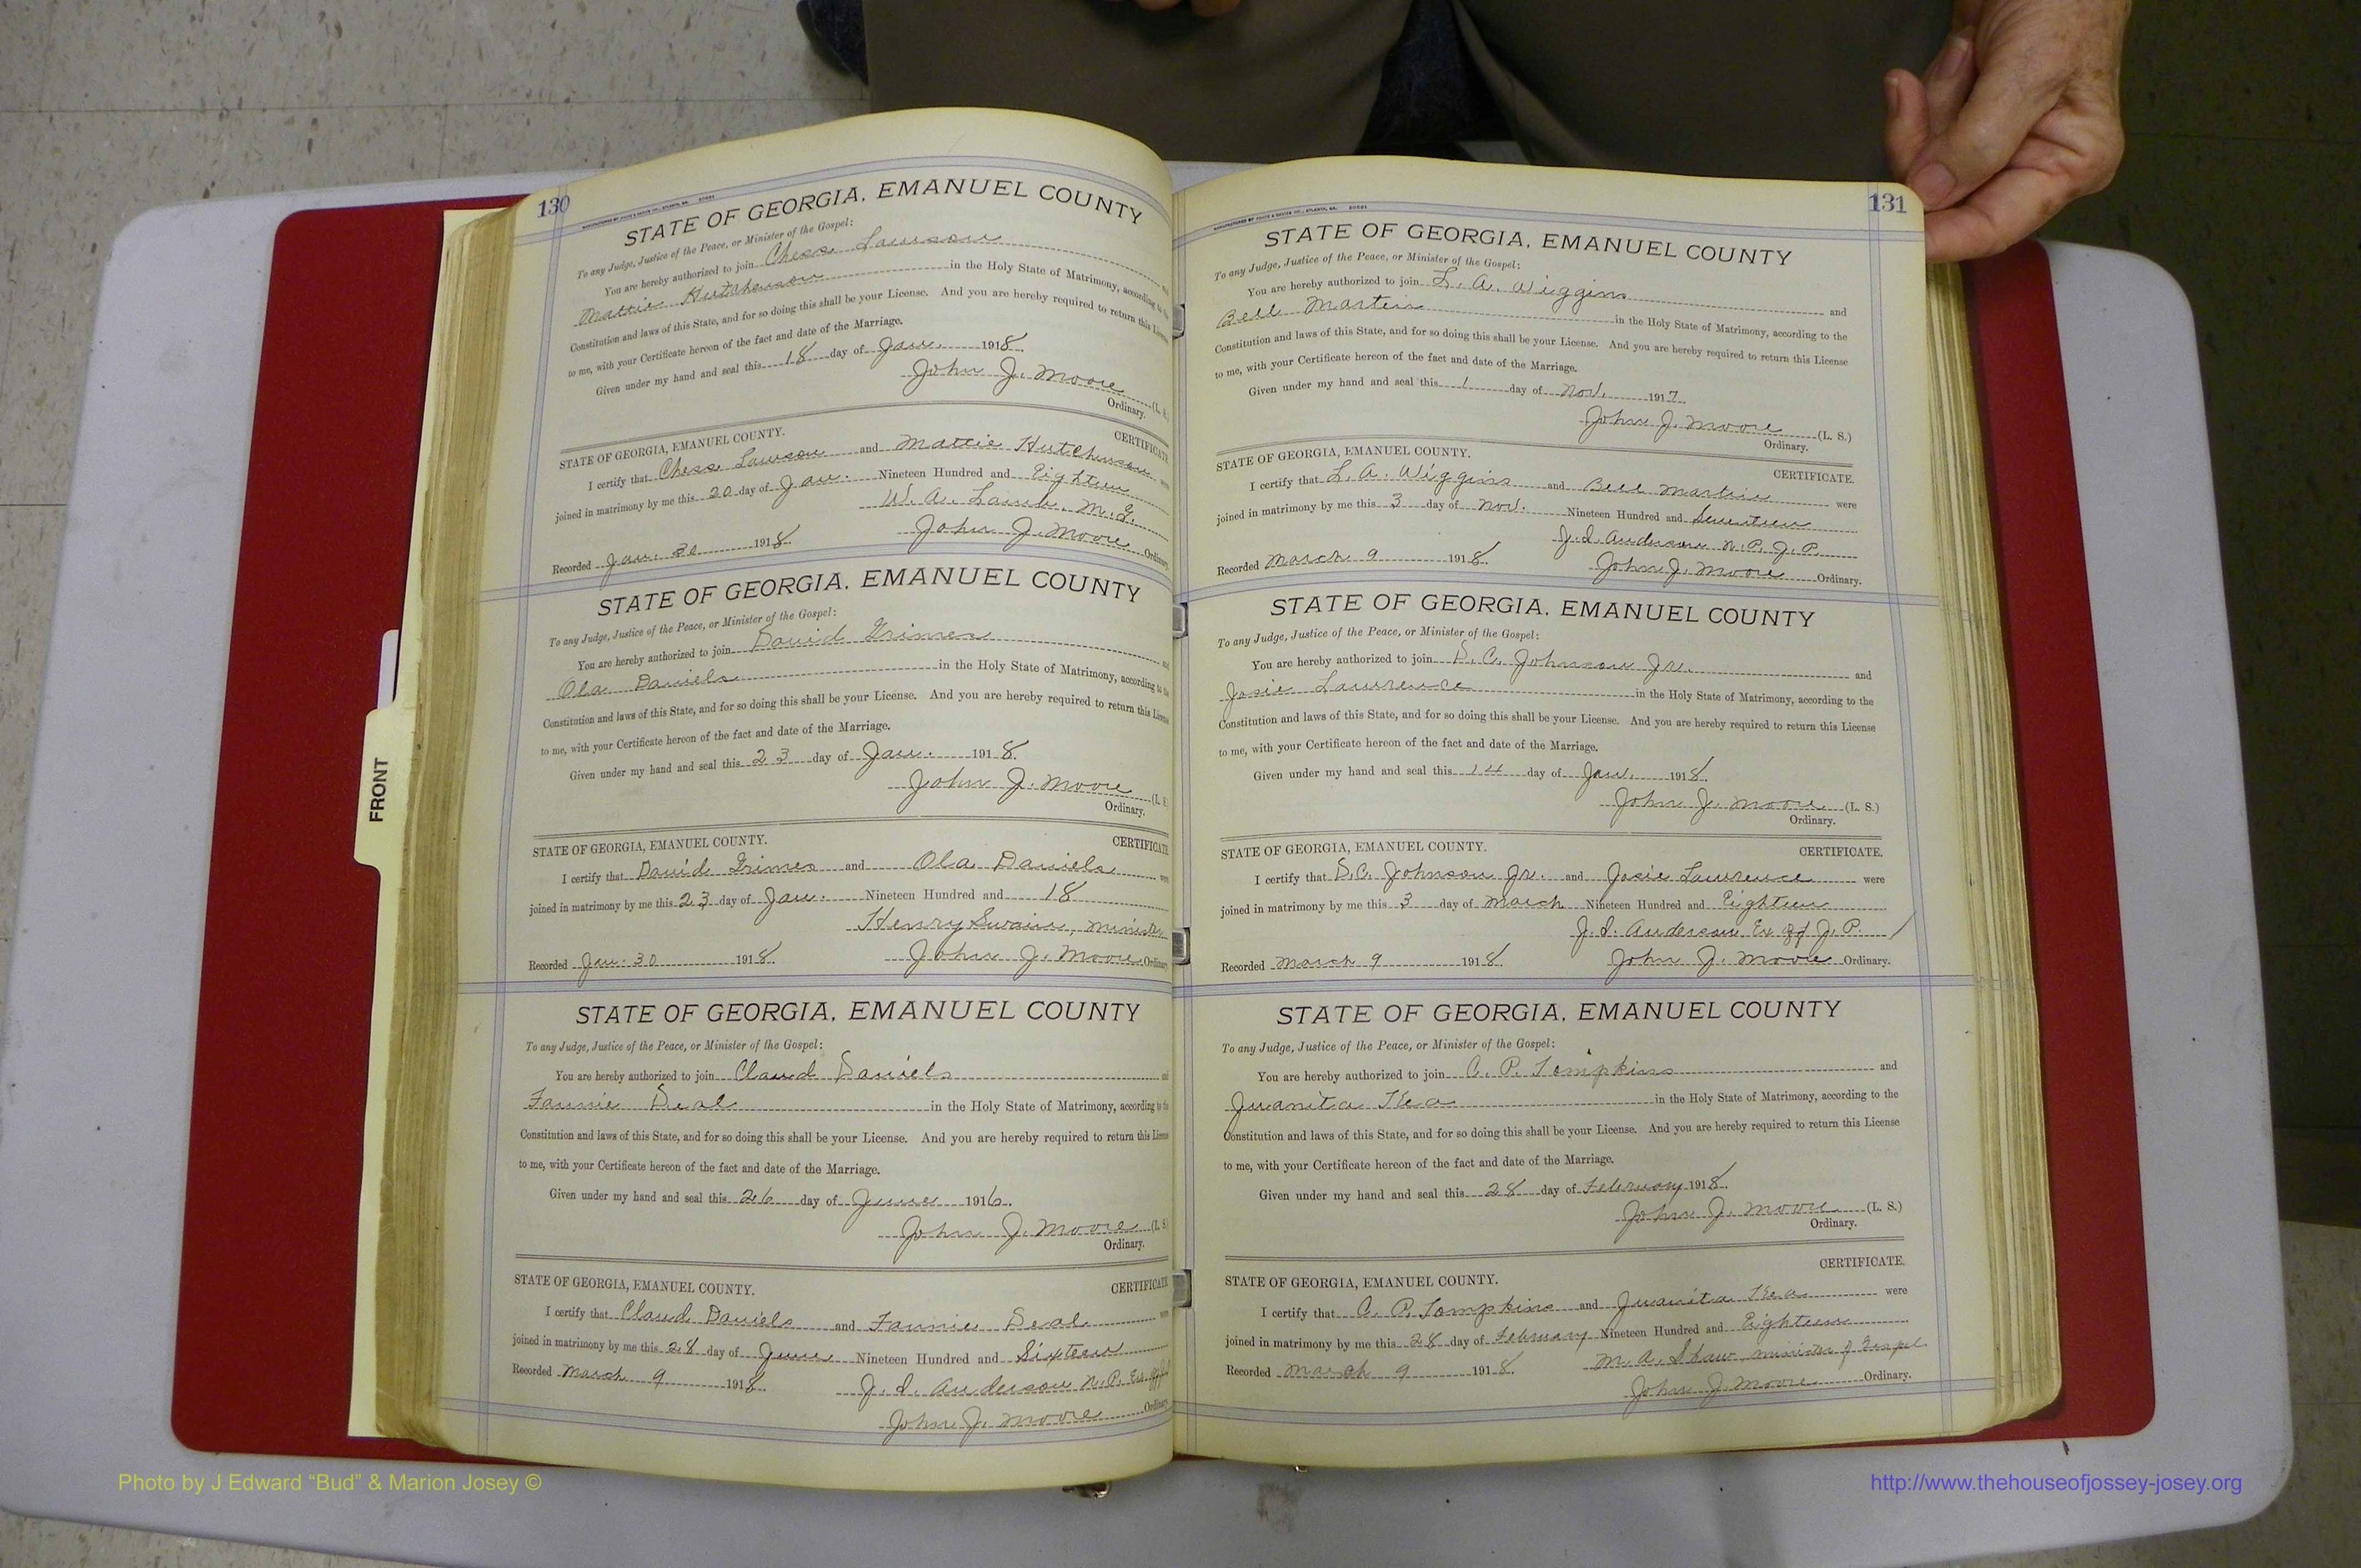 130
STATE OF GEORGIA, EMANUEL COUNTY
To any Judge, Justice of the Peace, or Minister of the Gospel:
You are hereby authorized to join Chess Lawson and
Mattie Hutchenson in the Holy State of Matrimony, according to the
Constitution and laws of this State, and for so doing this shall be your License. And you are hereby required to return this License
to me, with your Certificate hereon of the fact and date of the Marriage.
Given under my hand and seal this 18 day of Jan. 1918.
John J. Moore (L. S.)
Ordinary.
STATE OF GEORGIA, EMANUEL COUNTY. CERTIFICATE.
I certify that Chess Lawson and Mattie Hutchinson were
joined in matrimony by me this 20 day of Jan. Nineteen Hundred and Eighteen
W. A. Lamb, M.G.
Recorded Jan. 30 1918. John J. Moore Ordinary
STATE OF GEORGIA, EMANUEL COUNTY
To any Judge, Justice of the Peace, or Minister of the Gospel:
You are hereby authorized to join David Grimes and
Ola Daniels in the Holy State of Matrimony, according to the
Constitution and laws of this State, and for so doing this shall be your License. And you are hereby required to return this License
to me, with your Certificate hereon of the fact and date of the Marriage.
Given under my hand and seal this 23 day of Jan. 1918.
John J. Moore (L. S.
Ordinary.
STATE OF GEORGIA, EMANUEL COUNTY. CERTIFICATE
I certify that David Grimes and Ola Daniels were
joined in matrimony by me this 23 day of Jan. Nineteen Hundred and 18
Henry Swain, minister
Recorded Jan. 30 1918. John J. Moore Ordinary
STATE OF GEORGIA, EMANUEL COUNTY
To any Judge, Justice of the Peace, or Minister of the Gospel:
You are hereby authorized to join Claud Daniels and
Fannie Deal in the Holy State of Matrimony, according to the
Constitution and laws of this State, and for so doing this shall be your License. And you are hereby required to return this License
to me, with your Certificate hereon of the fact and date of the Marriage.
Given under my hand and seal this 26 day of June 1916.
John J. Moore (L. S
Ordinary.
STATE OF GEORGIA, EMANUEL COUNTY. CERTIFICATE
I certify that Claud Daniels and Fannie Deal were
joined in matrimony by me this 28 day of June Nineteen Hundred and Sixteen
Recorded March 9 1918. J. D. Anderson N. P. Ex.
John J. Moore Ordinary
131
STATE OF GEORGIA, EMANUEL COUNTY
To any Judge, Justice of the Peace, or Minister of the Gospel:
You are hereby authorized to join L. A. Wiggins and
Bell Martin in the Holy State of Matrimony, according to the
Constitution and laws of this State, and for so doing this shall be your License. And you are hereby required to return this License
to me, with your Certificate hereon of the fact and date of the Marriage.
Given under my hand and seal this 1 day of Nov. 1917.
John J. Moore (L. S.)
Ordinary.
STATE OF GEORGIA, EMANUEL COUNTY. CERTIFICATE.
I certify that L. A. Wiggins and Bell Martin were
joined in matrimony by me this 3 day of Nov. Nineteen Hundred and Seventeen
J. D. Anderson N. P. J. P.
Recorded March 9 1918. John J. Moore Ordinary.
STATE OF GEORGIA, EMANUEL COUNTY
To any Judge, Justice of the Peace, or Minister of the Gospel:
You are hereby authorized to join D. C. Johnson Jr. and
Josie Lawrence in the Holy State of Matrimony, according to the
Constitution and laws of this State, and for so doing this shall be your License. And you are hereby required to return this License
to me, with your Certificate hereon of the fact and date of the Marriage.
Given under my hand and seal this 14 day of Jan. 1918.
John J. Moore (L. S.)
Ordinary.
STATE OF GEORGIA, EMANUEL COUNTY. CERTIFICATE.
I certify that D. C. Johnson Jr. and Josie Lawrence were
joined in matrimony by me this 3 day of March Nineteen Hundred and Eighteen
J. D. Anderson Ex J. P.
Recorded March 9 1918. John J. Moore Ordinary.
STATE OF GEORGIA, EMANUEL COUNTY
To any Judge, Justice of the Peace, or Minister of the Gospel:
You are hereby authorized to join C. P. Tompkins and
Juanita Kea in the Holy State of Matrimony, according to the
Constitution and laws of this State, and for so doing this shall be your License. And you are hereby required to return this License
to me, with your Certificate hereon of the fact and date of the Marriage.
Given under my hand and seal this 28 day of February 1918.
John J. Moore (L. S.)
Ordinary.
STATE OF GEORGIA, EMANUEL COUNTY. CERTIFICATE.
I certify that C. P. Tompkins and Juanita Kea were
joined in matrimony by me this 28 day of February Nineteen Hundred and Eighteen
Recorded March 9 1918. M. A. Shaw minister of Gospel
John J. Moore Ordinary.
FRONT
Photo by J Edward “Bud” & Marion Josey ©
http://www.thehouseofjossey-josey.org